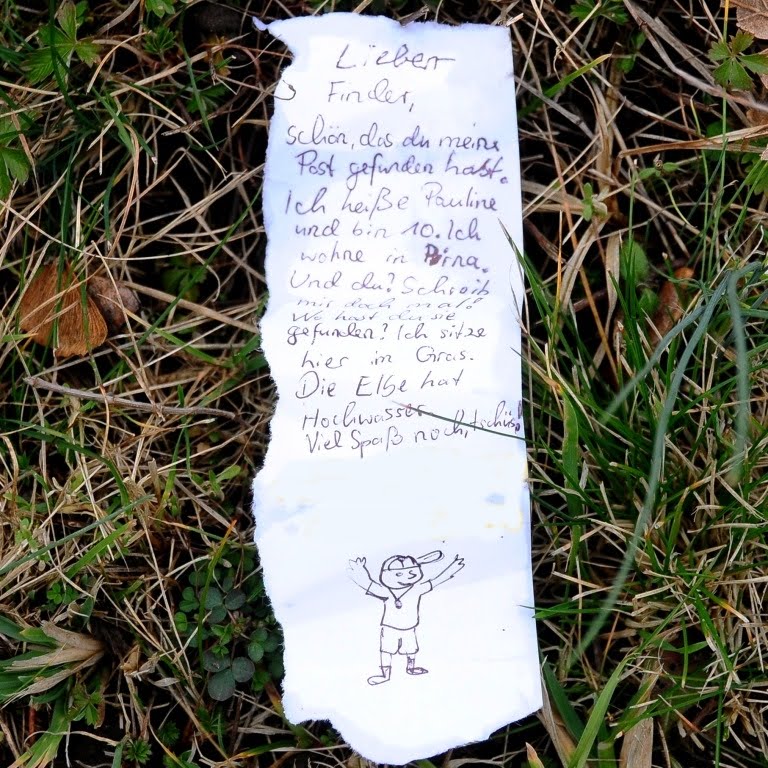 Lieber
Finder,
schön, das du meine
Post gefunden habt.
Ich heiße Pauline
und bin 10. Ich
wohne in Pirna.
Und du? Schreib
mir doch mal!
Wo hast du sie
gefunden? Ich sitze
hier im Gras.
Die Elbe hat
Hochwasser
Viel Spaß noch, tschüß